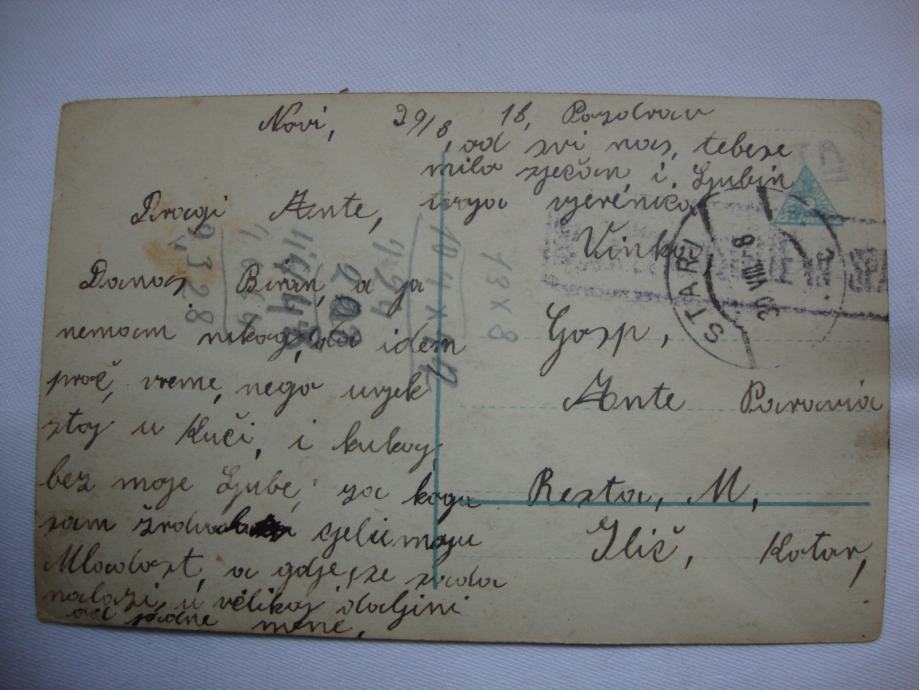 Novi, 29/8 18, Pozdrav
od svi nas, tebe se
mila sječam i Ljubin
tvoja vjerenica
Vinka
Dragi Ante,
Danas Biran, a ja
nemam nikog, da idem
proč, vreme, nego uvjek
stoj u Kuči, i kukoj,
bez moje Ljube, za koga
sam žrdvala cjelu moju
Mladost, a gdje se sada
nalazi, u velikoj daljini
od jadne mene,
Gosp,
Ante Paravia
Resta, M,
Iliš, Kotar,
STARI
30 VIII. 8
13 X 8
9328